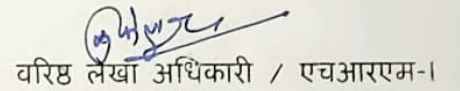 वरिष्ठ लेखा अधिकारी / एचआरएम-I